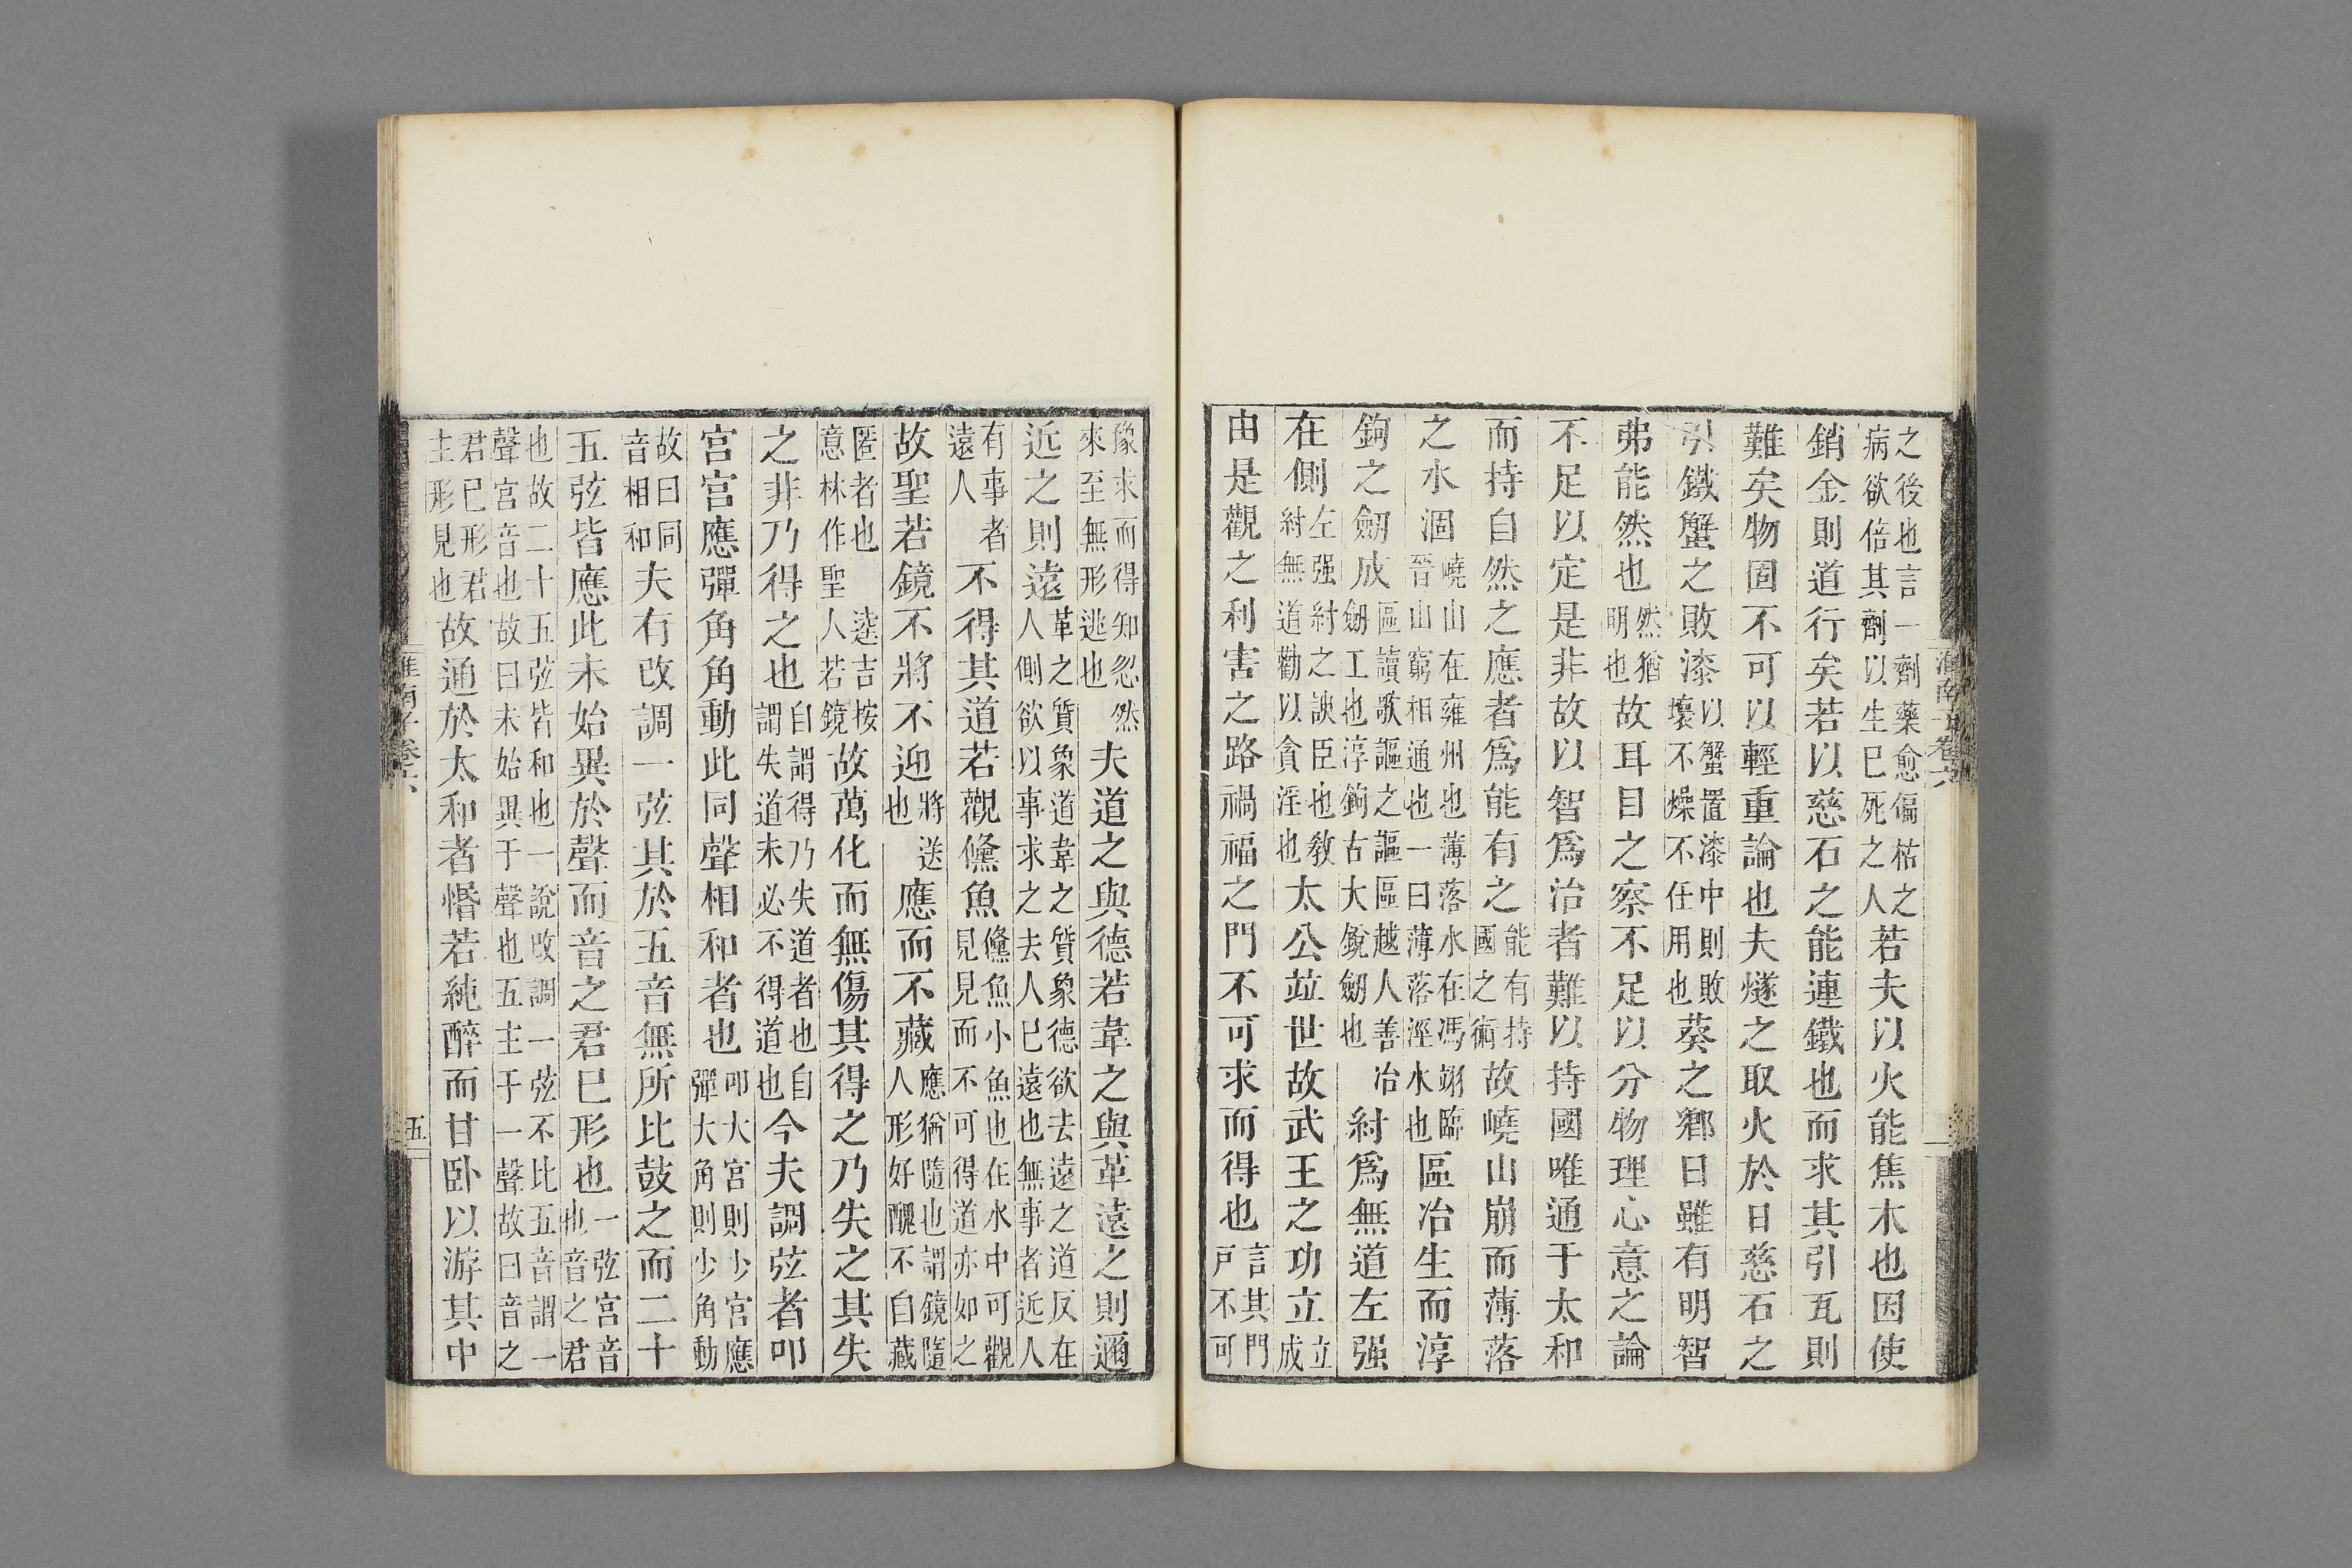 淮南子卷六
之後也言一劑藥愈偏枯之病欲倍其劑以生已死之人若夫以火能焦木也因使
銷金則道行矣若以慈石之能連鐵也而求其引瓦則
難矣物固不可以輕重論也夫燧之取火於日慈石之
引鐵蟹之敗漆以蟹置漆中則敗壞不燥不任用也葵之鄉日雖有明智
弗能然也然猶明也故耳目之察不足以分物理心意之論
不足以定是非故以智爲治者難以持國唯通于太和
而持自然之應者爲能有之能有持國之術故嶢山崩而薄落
之水涸嶢山在雍州也薄落水在馮翊臨晉山窮相通也一曰薄落涇水也區冶生而淳
鉤之劒成區讀歌謳之謳區越人善冶劒工也淳鉤古大銳劒也紂爲無道左强
在側左强紂之諛臣也教紂無道勸以貪淫也太公竝世故武王之功立立成
由是觀之利害之路禍福之門不可求而得也言其門戸不可
豫求而得知忽然來至無形逃也夫道之與德若韋之與革遠之則邇
近之則遠革之質象道韋之質象德欲去遠之道反在人側欲以事求之去人已遠也無事者近人
有事者遠人不得其道若觀鯈魚鯈魚小魚也在水中可觀見見而不可得道亦如之
故聖若鏡不將不迎將送也應而不藏應猶隨也謂鏡隨人形好醜不自藏
匿者也逵吉按意林作聖人若鏡故萬化而無傷其得之乃失之其失
之非乃得之也自謂得乃失道者也自謂失道未必不得道也今夫調弦者叩
宮宮應彈角角動此同聲相和者也叩大宮則少宮應彈大角則少角動
故曰同音相和夫有改調一弦其於五音無所比鼓之而二十
五弦皆應此未始異於聲而音之君已形也一弦宮音也音之君
也故二十五弦皆和也一說改調一弦不比五音謂一聲宮音也故曰未始異于聲也五主于一聲故曰音之
君已形君主形見也故通於太和者惛若純醉而甘卧以游其中
淮南子卷六
五